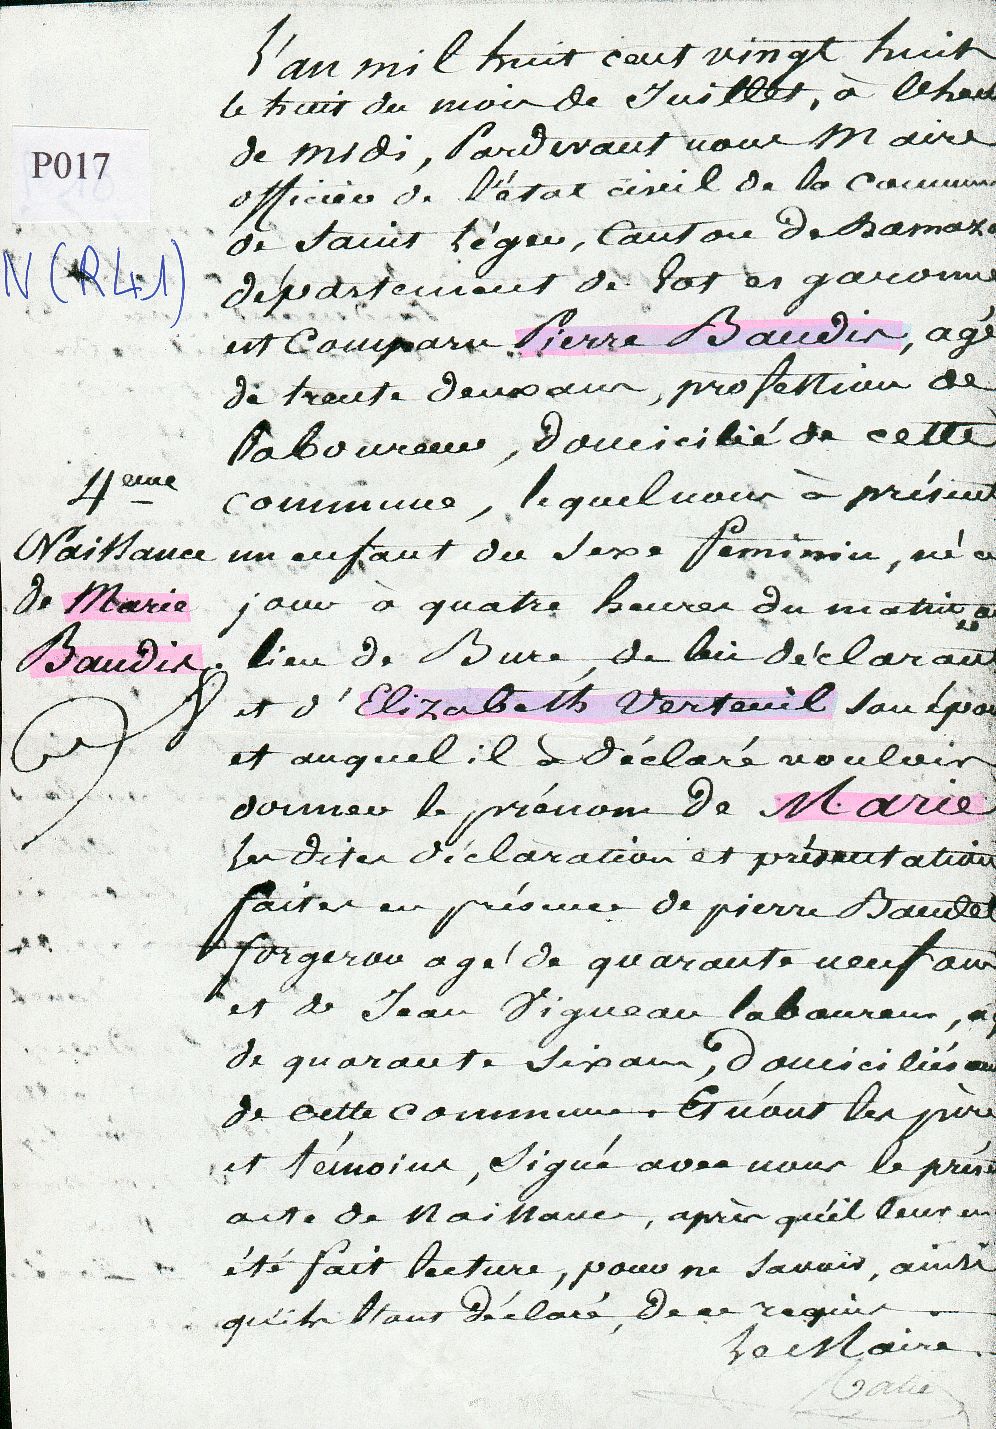 P017
N (R41)
4eme
Naissance
de Marie
Baudis.
L'an mil huit cent vingt huit
le huit du mois de Juillet, à lheu
de midi, Pardevant nous Maire
officier de l'état civil de la commun
de Saint Léger, Canton de Damaza
département de Lot et garonne
est Comparu Pierre Baudis, agé
de trente deux ans, profession de
laboureur, domicilié de cette
commune, lequel nous à présent
un enfant du sexe féminin, né c
jour à quatre heures du matin, a
lieu de Buré, de lui déclarant
et d'Elizabeth Verteuil son épou
et auquel il à déclaré vouloir
donner le prénom de Marie
Les dites déclaration et présentation
faites en présence de pierre Baudet
forgeron agé de quarante neuf ans
et de Jean Vigneau laboureur, ag
de quarante six ans, Domiciliés
de cette commune. Et n'ont les père
et témoins, signé avec nous le prése
acte de Naissance, après qu'il leur en
été fait lecture, pour ne savoir, ainsi
qu'ils l'ont déclaré, de ce requis
Le Maire.